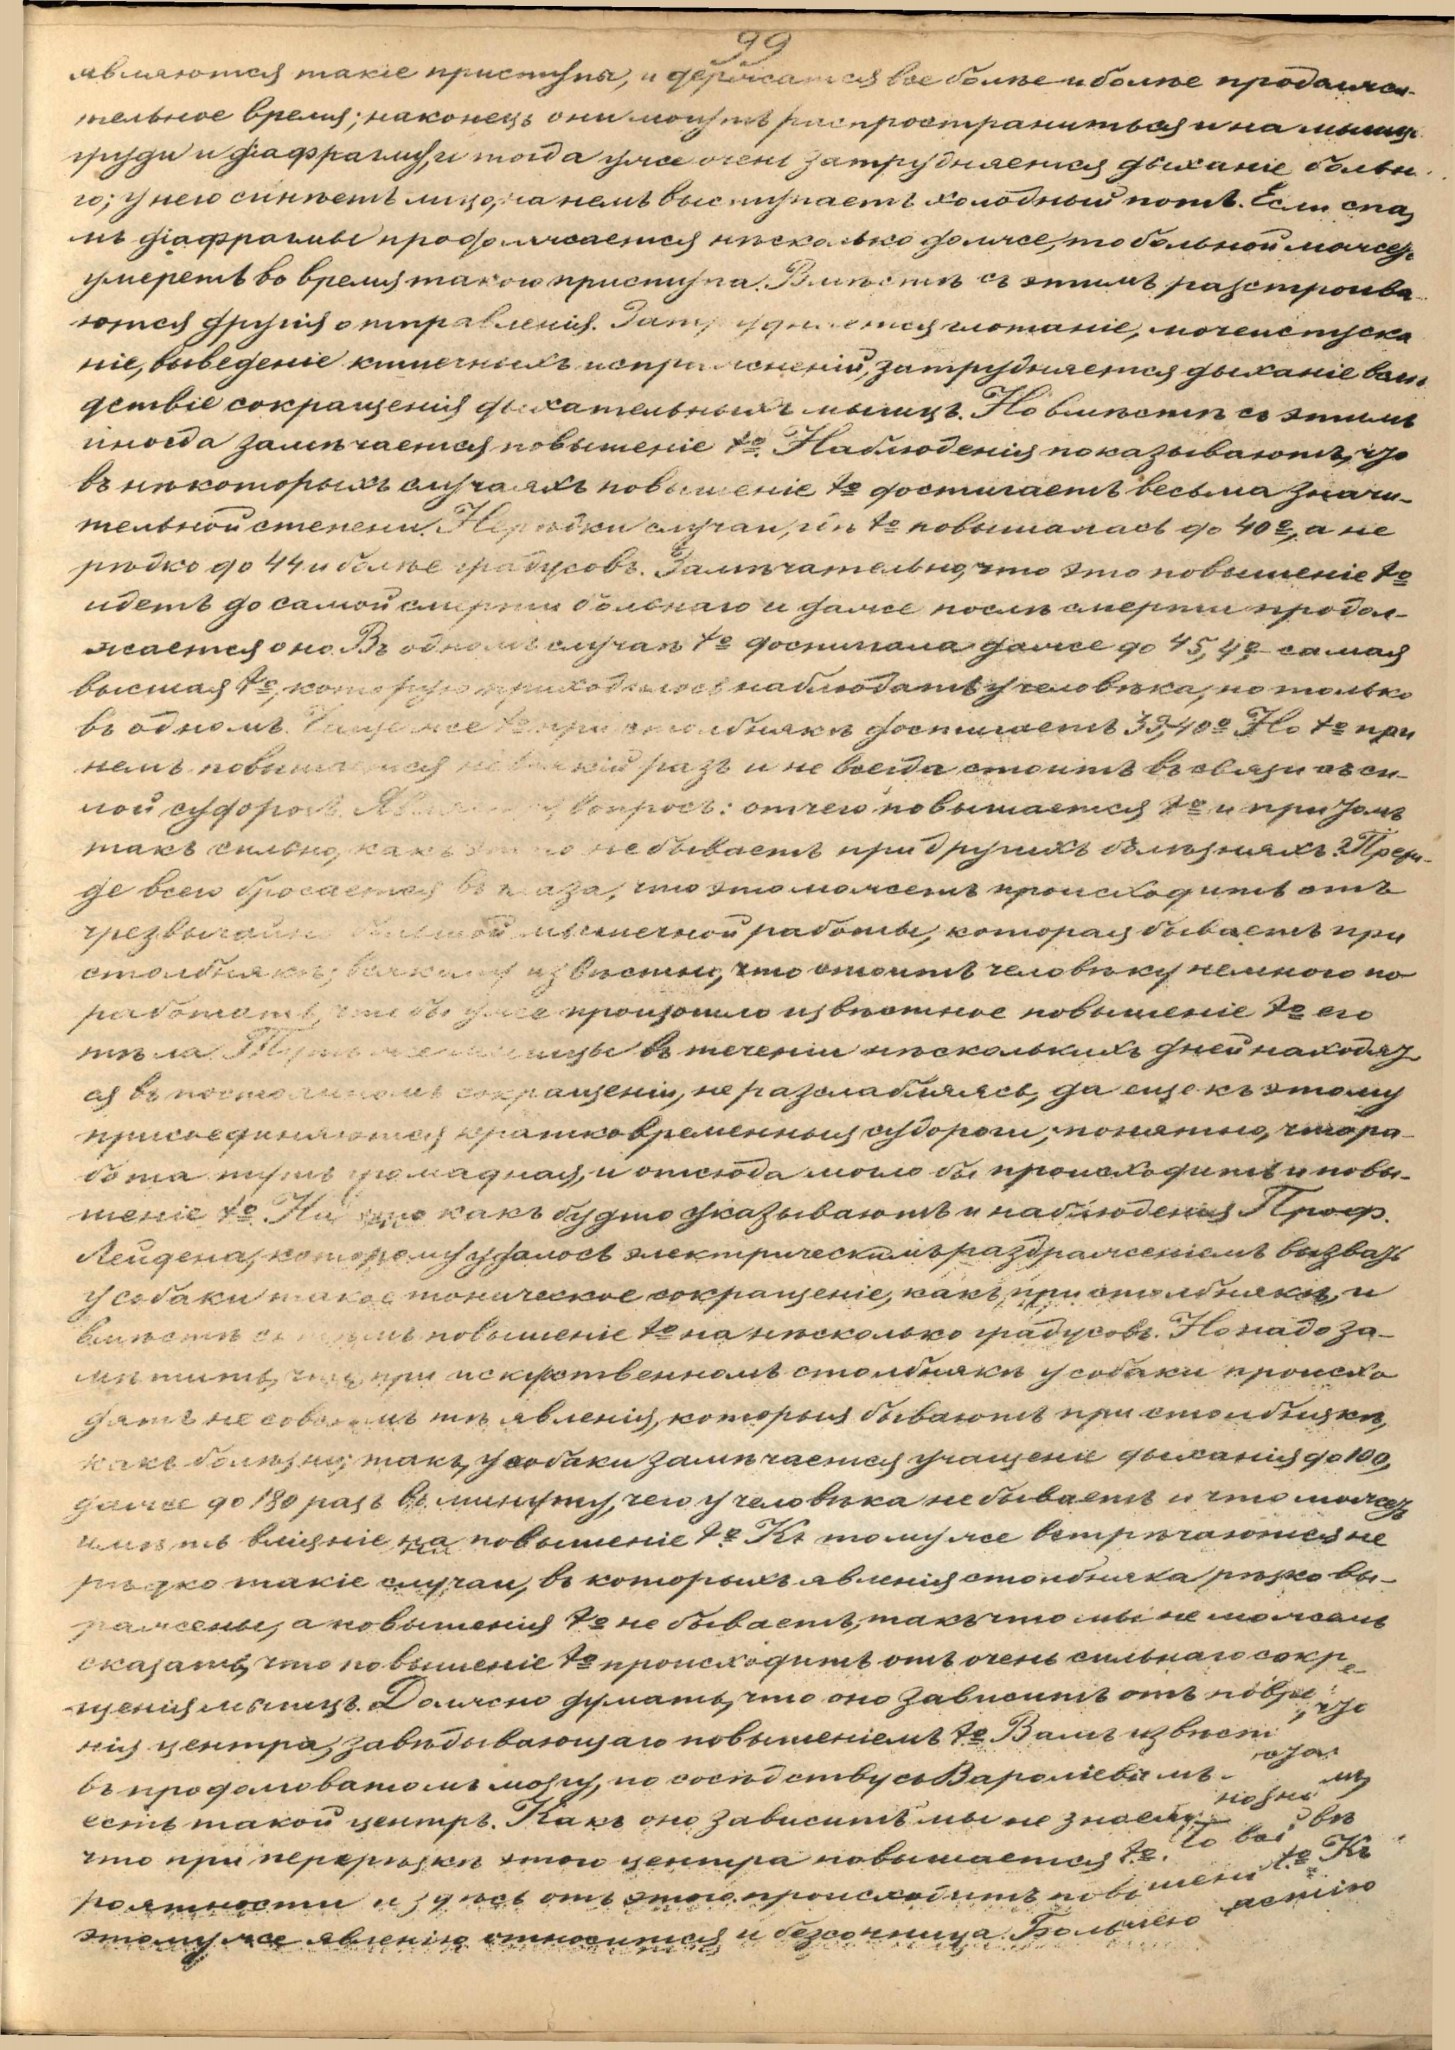 99
являются такіе приступы, и держатся все болѣе и болѣе продолжи-
тельное время; наконецъ они могутъ распространиться и на мышцы
груди и діафрагму, и тогда уже очень затрудняется дыханіе больн
го; у него синѣетъ лицо, на немъ выступаетъ холодный потъ. Если спаз
мъ діафрагмы продолжается нѣсколько долѣе, то больной можетъ
умереть во время такого приступа. Вмѣстѣ съ этимъ разстроива
ются другія отправленія. Затрудняется глотаніе, мочеиспуска
ніе, выведеніе кишечныхъ испражненій, затрудняется дыханіе вслѣ
дствіе сокращенія дыхательныхъ мышцъ. Но вмѣстѣ съ этимъ
иногда замѣчается повышеніе tº. Наблюденія показываютъ, что
въ нѣкоторыхъ случаяхъ повышеніе tº достигаетъ весьма значи-
тельной степени. Нерѣдки случаи, гдѣ tº повышалась до 40º, а не
рѣдко до 44 и болѣе градусовъ. Замѣчательно, что это повышеніе tº
идетъ до самой смерти больнаго и даже послѣ смерти продол-
жается оно. Въ одномъ случаѣ tº достигала даже до 45,4º самая
высшая tº, которую приходилось наблюдать у человѣка, но только
въ одномъ. Чаще же tº при столбнякѣ достигаетъ 39,40º Но tº при
немъ повышается не всякій разъ и не всегда стоитъ въ связи съ си-
лой судорогъ. Является вопросъ: отчего повышается tº и при томъ
такъ сильно, какъ этого не бываетъ при другихъ болѣзняхъ? Преж-
де всего бросается въ глаза, что это можетъ происходить отъ
чрезвычайно большой мышечной работы, которая бываетъ при
столбнякѣ; всякому извѣстно, что стоитъ человѣку немного по
работать, чтобы уже произошло извѣстное повышеніе tº его
тѣла. Тутъ же мышцы въ теченіи нѣсколькихъ дней находят
ся въ постоянномъ сокращеніи, не разслабляясь, да еще къ этому
присоединяются кратковременныя судороги; понятно, что ра-
бота тутъ громадная, и отсюда могло бы происходить и повы-
шеніе tº. На это какъ будто указываютъ и наблюденія Проф.
Лейдена, которому удалось электрическимъ раздраженіемъ вызвать
у собаки такое тоническое сокращеніе, какъ при столбнякѣ, и
вмѣстѣ съ тѣмъ повышеніе tº на нѣсколько градусовъ. Но надо за-
мѣтить, что при искуственномъ столбнякѣ у собаки происхо
дятъ не совсѣмъ тѣ явленія, которыя бываютъ при столбнякѣ,
какъ болѣзни; такъ, у собаки замѣчается учащеніе дыханія до 100,
даже до 180 разъ въ минуту, чего у человѣка не бываетъ и что можетъ
имѣть вліяніе на повышеніе tº. Къ тому же встрѣчаются не
рѣдко такіе случаи, въ которыхъ явленія столбняка рѣзко вы-
ражены, а повышенія tº не бываетъ, такъ что мы не можемъ
сказать, что повышеніе tº происходитъ отъ очень сильнаго сокра
щенія мышцъ. Должно думать, что оно зависитъ отъ
нія центра, завѣдывающаго повышеніемъ tº. Вамъ извѣст что
въ продолговатомъ мозгу, по сосѣдству съ Вароліевымъ
есть такой центръ. Какъ оно зависитъ мы не знаемъ,
что при перерѣзкѣ этого центра повышается tº. По всей вѣ
роятности и здѣсь отъ этого происходитъ повышеніе tº. Къ
этому же явленію относится и безсонница. Большею частію